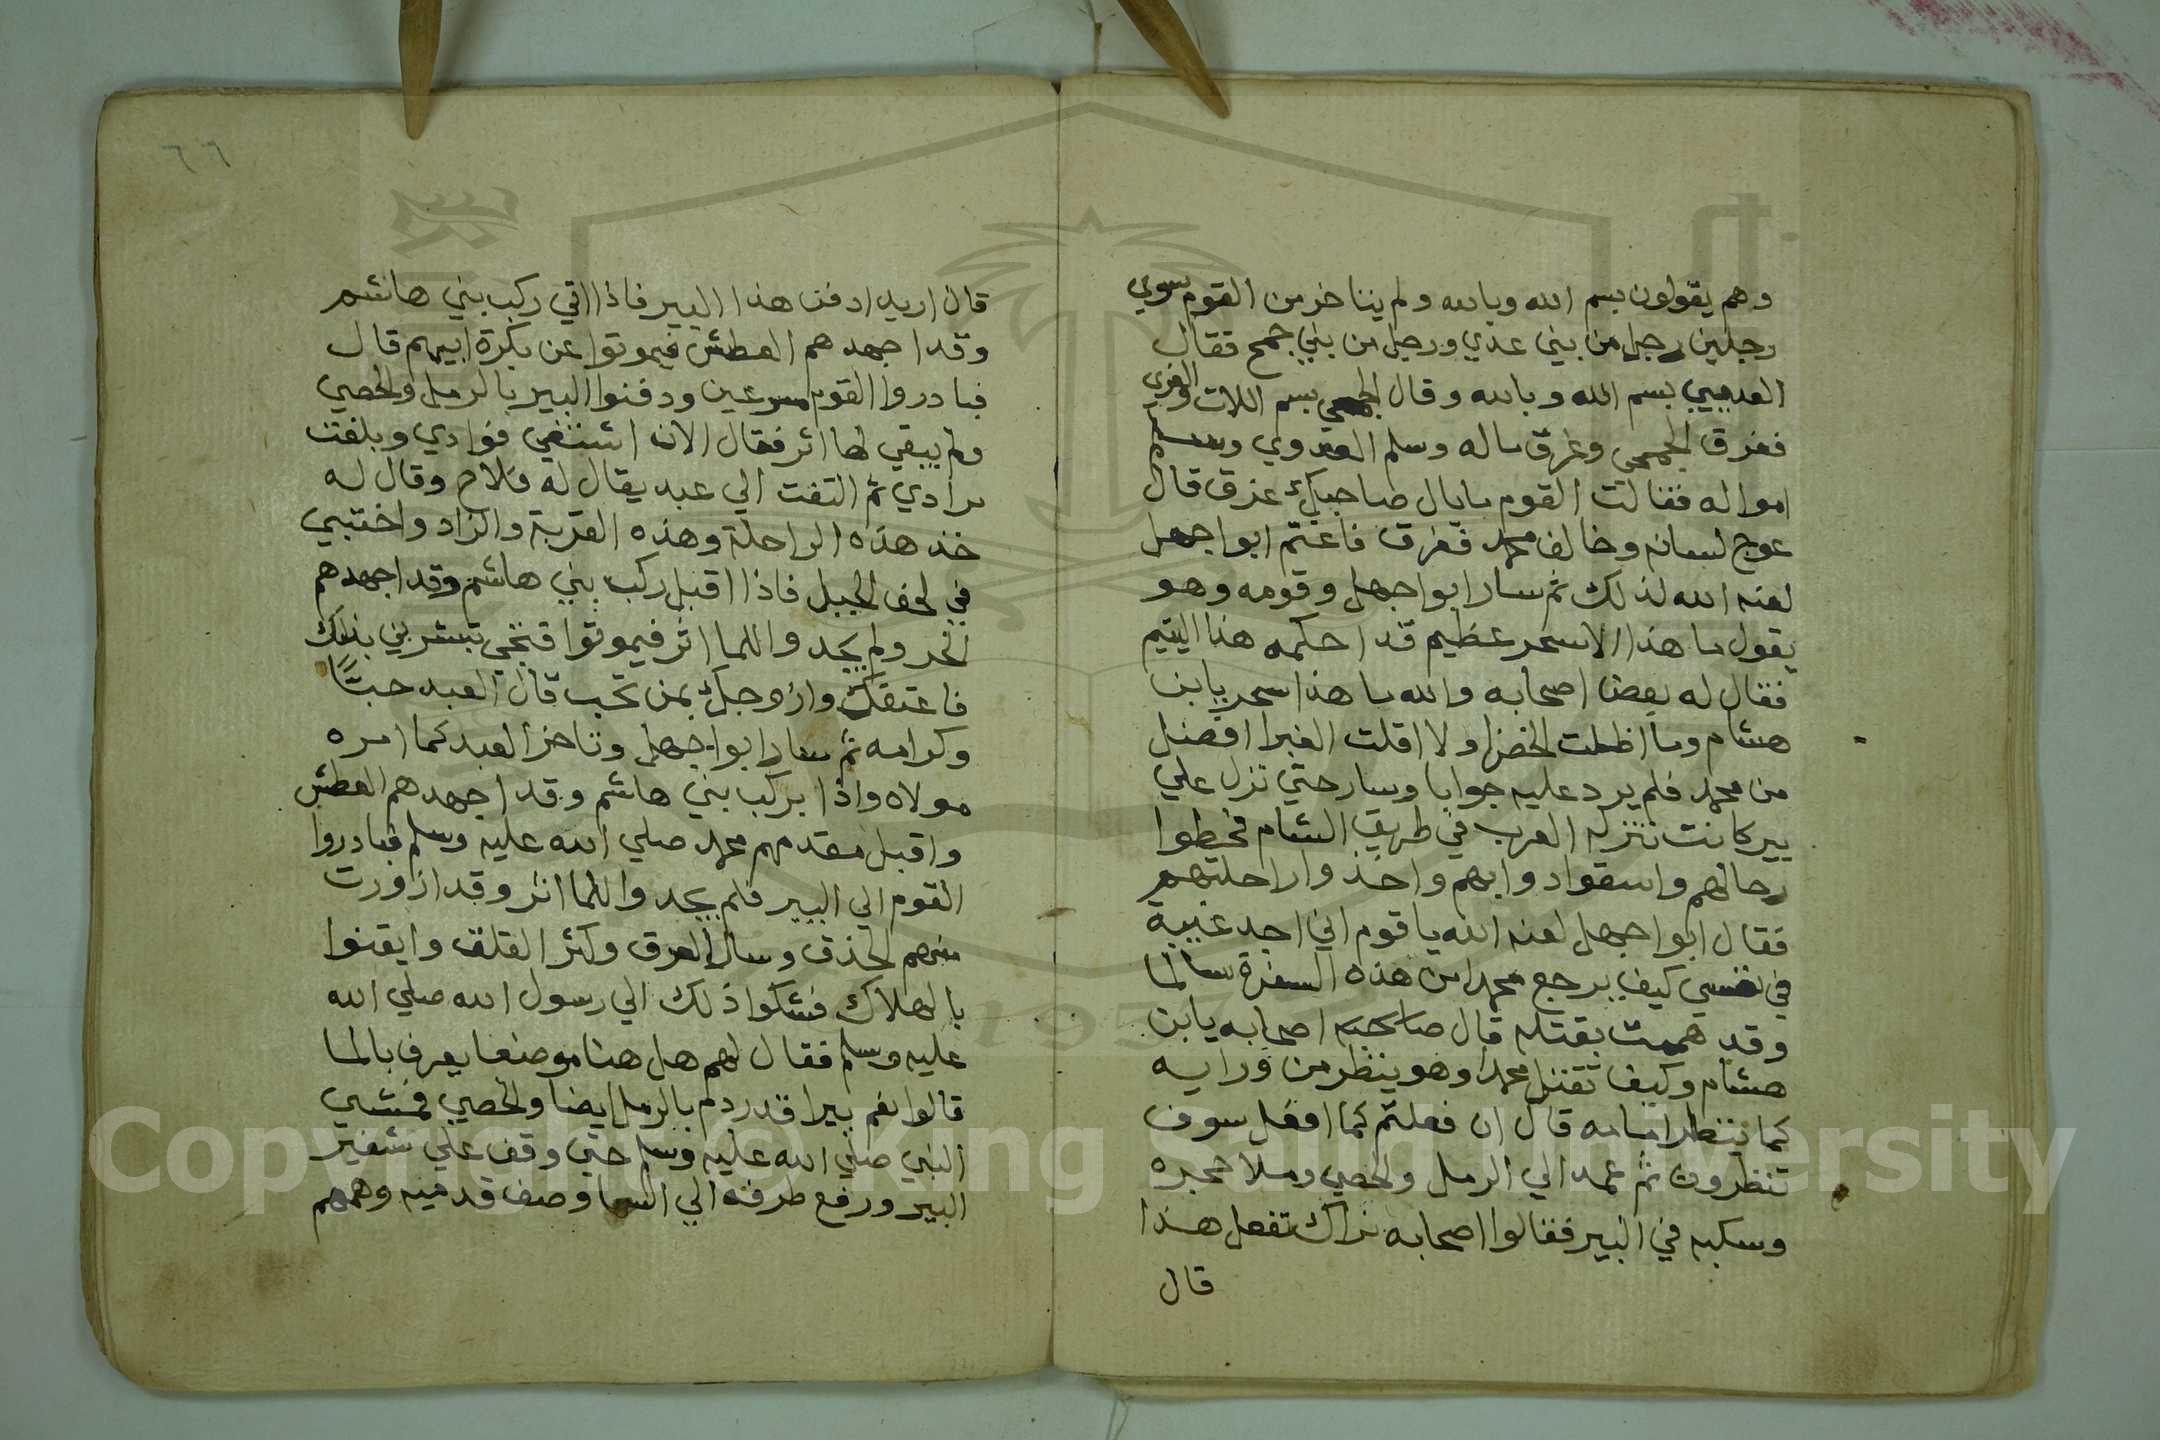 وهم يقولون بسم الله وبالله ولم يتاخر من القوم سوي
رجلين رجل من بني عدي ورجل من بني جمح فقال
العديي بسم الله وبالله وقال الجمحي بسم اللات والعزي
فغرق الجمحي وغرق ماله وسلم العدوي وسلم
امواله فقالت القوم ما بال صاحبك غرق قال
عوج لسانه وخالف محمد فغرق فاغتم ابوا جهل
لعنه الله لذلك ثم سار ابوا جهل وقومه وهو
يقول ما هذا الا سحر عظيم قد احكمه هذا اليتيم
فقال له بعض اصحابه والله ما هذا سحر يابن
هشام وما اظلت الخضرا ولا اقلت الغبرا افضل
من محمد فلم يرد عليه جوابا وسار حتي نزل علي
بير كانت تنزله العرب في طريق الشام فحطوا
رحالهم واسقوا دوابهم واخذوا راحلتهم
فقال ابوا جهل لعنه الله يا قوم اني اجد غبية
في نفسي كيف يرجع محمد من هذه السفرة سالما
وقد هممت بقتله قال صاحبه اصحابه يابن
هشام وكيف تقتل محمد وهو ينظر من ورايه
كما ينظر امامه قال ان فعلتم كما افعل سوف
تنظرون ثم عمد الي الرمل والحصي وملا حجره
وسكبه في البير فقالوا اصحابه نراك تفعل هذا
قال
٦٦
قال اريد ادفن هذا البير فاذا اتي ركب بني هاشم
وقد اجهدهم العطش فيموتوا عن بكرة ابيهم قال
فبادروا القوم مسرعين ودفنوا البير بالرمل والحصي
ولم يبقي لها اثر فقال الان اشتفي فوادي وبلغت
مرادي ثم التفت الي عبد يقال له فلاح وقال له
خذ هذه الراحلة وهذه القربة والزاد واختبي
في لحف الجبل فاذا اقبل ركب بني هاشم وقد اجهدهم
الحر ولم يجدوا للما اثر فيموتوا فتجي تبشرني بذلك
فاعتقك وازوجك بمن تحب قال العبد حبًا
وكرامه ثم سار ابوا جهل وتاخر العبد كما امره
مولاه واذا بركب بني هاشم وقد اجهدهم العطش
واقبل مقدمهم محمد صلي الله عليه وسلم فبادروا
القوم الي البير فلم يجدوا للما اثر وقد ازورت
منهم الحذق وسال العرق وكثر القلق وايقنوا
بالهلاك فشكوا ذلك الي رسول الله صلي الله
عليه وسلم فقال لهم هل هنا موضعا يعرف بالما
قالوا نعم بيرا قد ردم بالرمل ايضا والحصي فمشي
النبي صلي الله عليه وسلم حتي وقف علي شفير
البير ورفع طرفه الي السما وصف قدميه وهمهم
Copyright © King Saud University